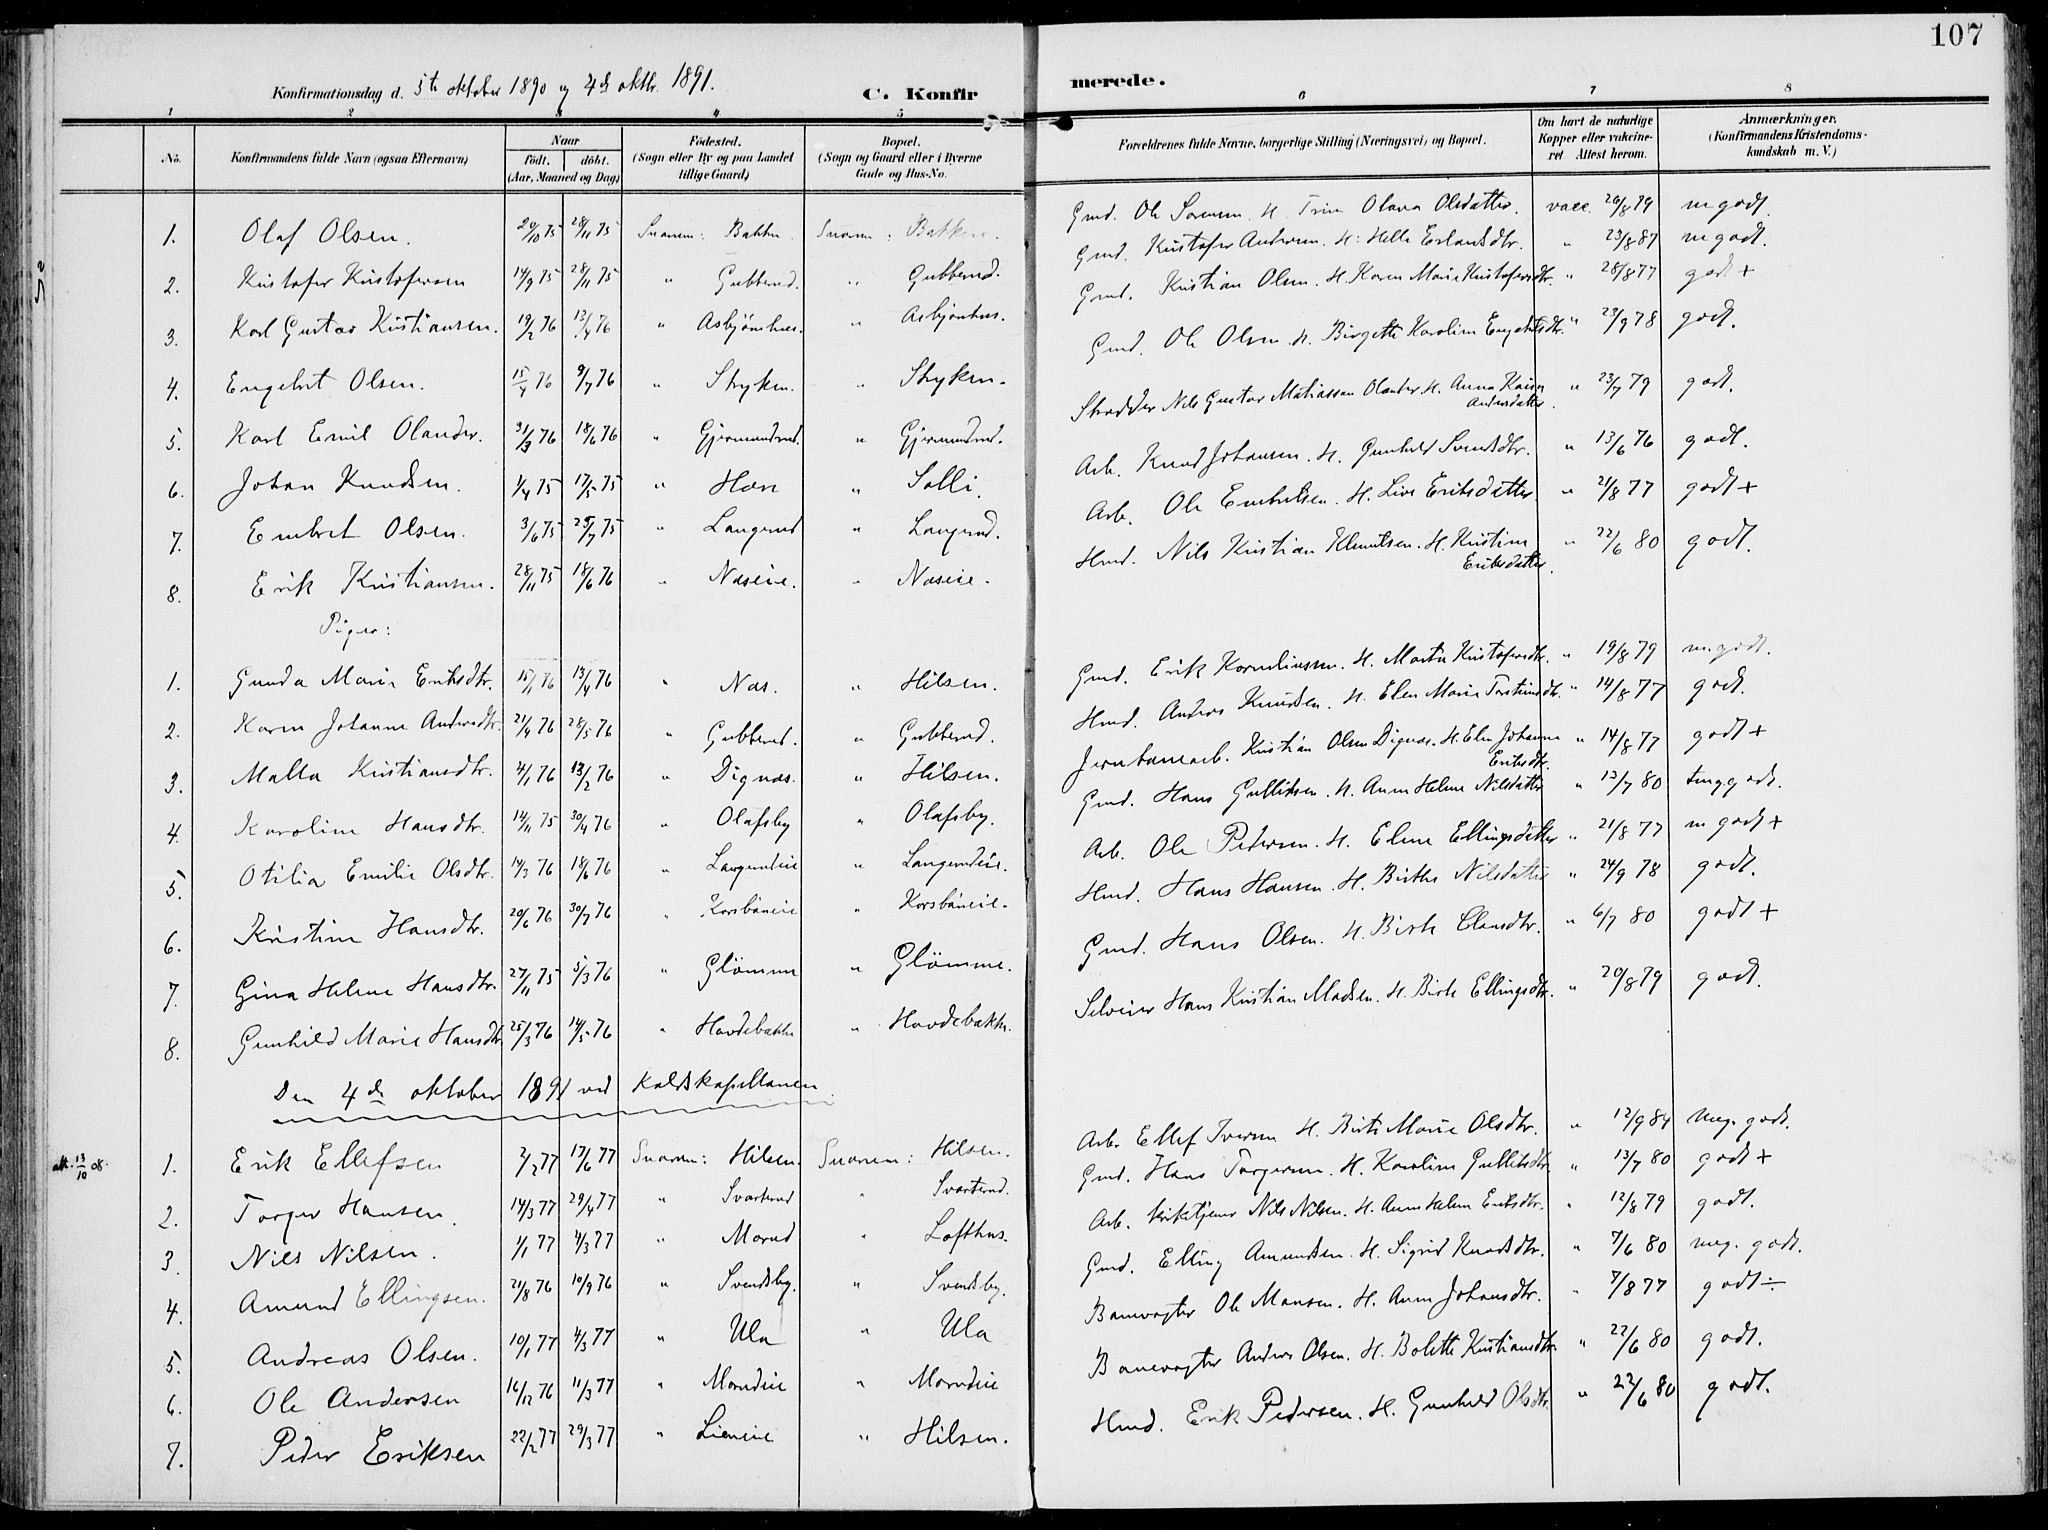 107
Konfirmationsdag d. 5te oktober 1890 og 4de oktbr. 1891.
C. Konfirmerede.
1 2 3 4 5 6 7 8
No. Konfirmandens fulde Navn (ogsaa Efternavn) Naar født. døbt. (Aar, Maaned og Dag) Fødested. (Sogn eller By og paa Landet tillige Gaard) Bopæl. (Sogn og Gaard eller i Byerne Gade og Hus-No. Forældrenes fulde Navne, borgerlige Stilling (Næringsvei) og Bopæl. Om havt de naturlige Kopper eller vakcineret. Attest herom. Anmærkninger. (Konfirmandens Kristendomskundskab m. V.)
1. Olaf Olsen. 20/10 75 28/11 75 Snarum: Bakke Snarum: Bakken. Gmd. Ole Sørensen. H. Olava Olsdatter. vacc. 26/8 79 m godt.
2. Kristofer Kristofersen 14/9 75 28/11 75 " Gubberud. " Gubberud. Gmd. Kristofer Andersen. H: Helle Erlandsdtr. " 23/8 87 m godt.
3. Karl Gustav Kristiansen. 19/2 76 13/4 76 " Asbjørnhus. " Asbjørnhus. Gmd. Kristian Olsen. H. Karen Marie Kristofersdtr. " 28/8 77 godt +
4. Engebret Olsen. 15/4 76 9/7 76 " Stryken. " Stryken. Gmd. Ole Olsen. H. Birgette Karoline Engebretsdtr. " 23/9 78 godt.
5. Karl Emil Olander. 31/3 76 18/6 76 " Gjermundrud. " Gjermundrud. Skrædder Nils Gustav Matiassen Olander H. Anna Kaisa Andersdatter. " 23/7 79 godt.
6. Johan Knudsen. 1/4 75 17/5 75 " Hæn " Solli. Arb. Knud Johansen. H. Gunhild Svendsdtr. " 13/6 76 godt.
7. Embret Olsen. 3/6 75 25/7 75 " Langerud " Langerud. Arb. Ole Embretsen. H. Live Eriksdatter " 21/8 77 godt +
8. Erik Kristiansen. 28/11 75 18/6 76 " Næseie. " Næseie. Hmd. Nils Kristian Klemetsen. H. Kristine Eriksdatter. " 22/6 80 godt.
Piger:
1. Gunda Marie Eriksdtr. 15/1 76 13/4 76 " Næs. " Hilsen. Gmd. Erik Korneliussen. H. Marte Kristofersdtr. " 19/8 79 m. godt.
2. Karen Johanne Andersdtr. 21/4 76 28/5 76 " Gubberud. " Gubberud. Hmd. Anders Knudsen. H. Elen Marie Torstensdtr. " 14/8 77 godt.
3. Malla Kristiansdtr. 4/1 76 13/2 76 " Dignæs. " Hilsen. Jernbanearb. Kristian Olsen Dignæs. H. Elen Johanne Eriksdtr. " 14/8 77 godt +
4. Karoline Hansdtr. 14/11 75 30/4 76 " Olafsby " Olafsby. Gmd. Hans Gulliksen. H. Anne Helene Nilsdatter " 13/7 80 godt.
5. Otilia Emilie Olsdtr. 14/3 76 18/6 76 " Langerudeie " Langerudeie. Arb. Ole Pedersen. H. Elene Ellingsdatter " 21/8 77 m godt +
6. Kristine Hansdtr. 20/6 76 30/7 76 " Korsbøneie " Korsbøneie. Hmd. Hans Hansen. H. Birthe Nilsdatter " 24/9 78 godt.
7. Gina Helene Hansdtr. 27/11 75 5/3 76 " Glømme " Glømme. Gmd. Hans Olsen. H. Birte Olausdtr. " 6/7 80 godt +
8. Gunhild Marie Hansdtr. 25/3 76 14/5 76 " Hovdebakke " Hovdebakke. Selveier Hans Kristian Madsen. H. Birte Ellingsdtr. " 20/8 79 godt.
Den 4de oktober 1891 ved Kaldskapellanen
att. 13/10 08. 1. Erik Ellefsen 2/2 77 17/6 77 Snarum: Hilsen. Snarum: Hilsen. Arb. Ellef Iversen H. Birte Marie Olsdtr. " 12/9 84 meg. godt.
2. Torger Hansen. 14/3 77 29/4 77 " Svarterud " Svarterud. Gmd. Hans Torgersen. H. Karoline Gulliksdtr. " 13/7 80 godt +
3. Nils Nilsen. 1/1 77 4/3 77 " Morud " Lofthus. Arb. kirketjener Nils Nilsen. H. Anne Helene Eriksdtr. " 12/8 79 godt.
4. Amund Ellingsen. 21/8 76 10/9 76 " Svendsby. " Svendsby. Gmd. Elling Amundsen. H. Sigrid Knudsdtr. " 7/6 80 meg. godt.
5. Andreas Olsen. 10/1 77 4/3 77 " Ula " Ula Banevogter Ole Monsen. H. Anne Johansdtr. " 7/8 77 godt ÷
6. Ole Andersen 16/12 76 11/3 77 " Morudeie " Morudeie Banevogter Anders Olsen. H. Bolette Kristiansdtr. " 22/6 80 godt.
7. Peder Eriksen 22/2 77 29/3 77 " Lieneie " Hilsen. Hmd. Erik Pedersen. H. Gunhild Olsdtr. " 22/6 80 godt.